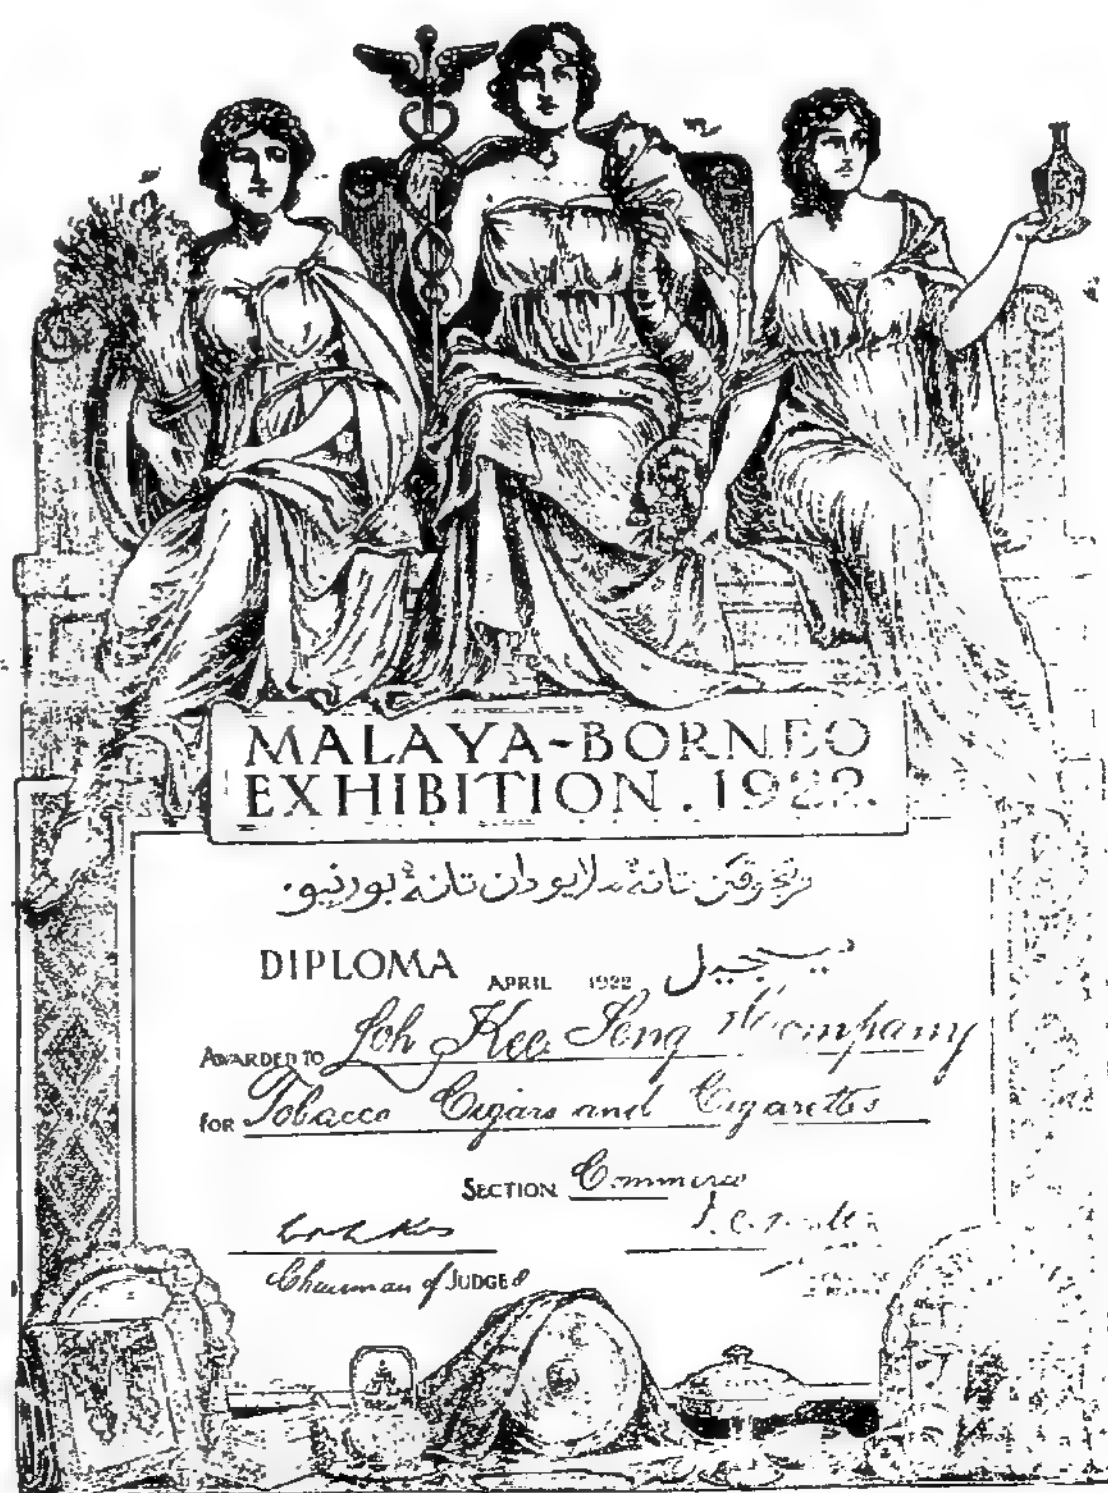 MALAYA-BORNEO
EXHIBITION. 1922.
تانه ملايو دان تانه بورنيو.
DIPLOMA APRIL 1922
AWARDED TO Loh Kee Seng & Company
FOR Tobacco Cigars and Cigarettes
SECTION Commerce
Chairman of JUDGES